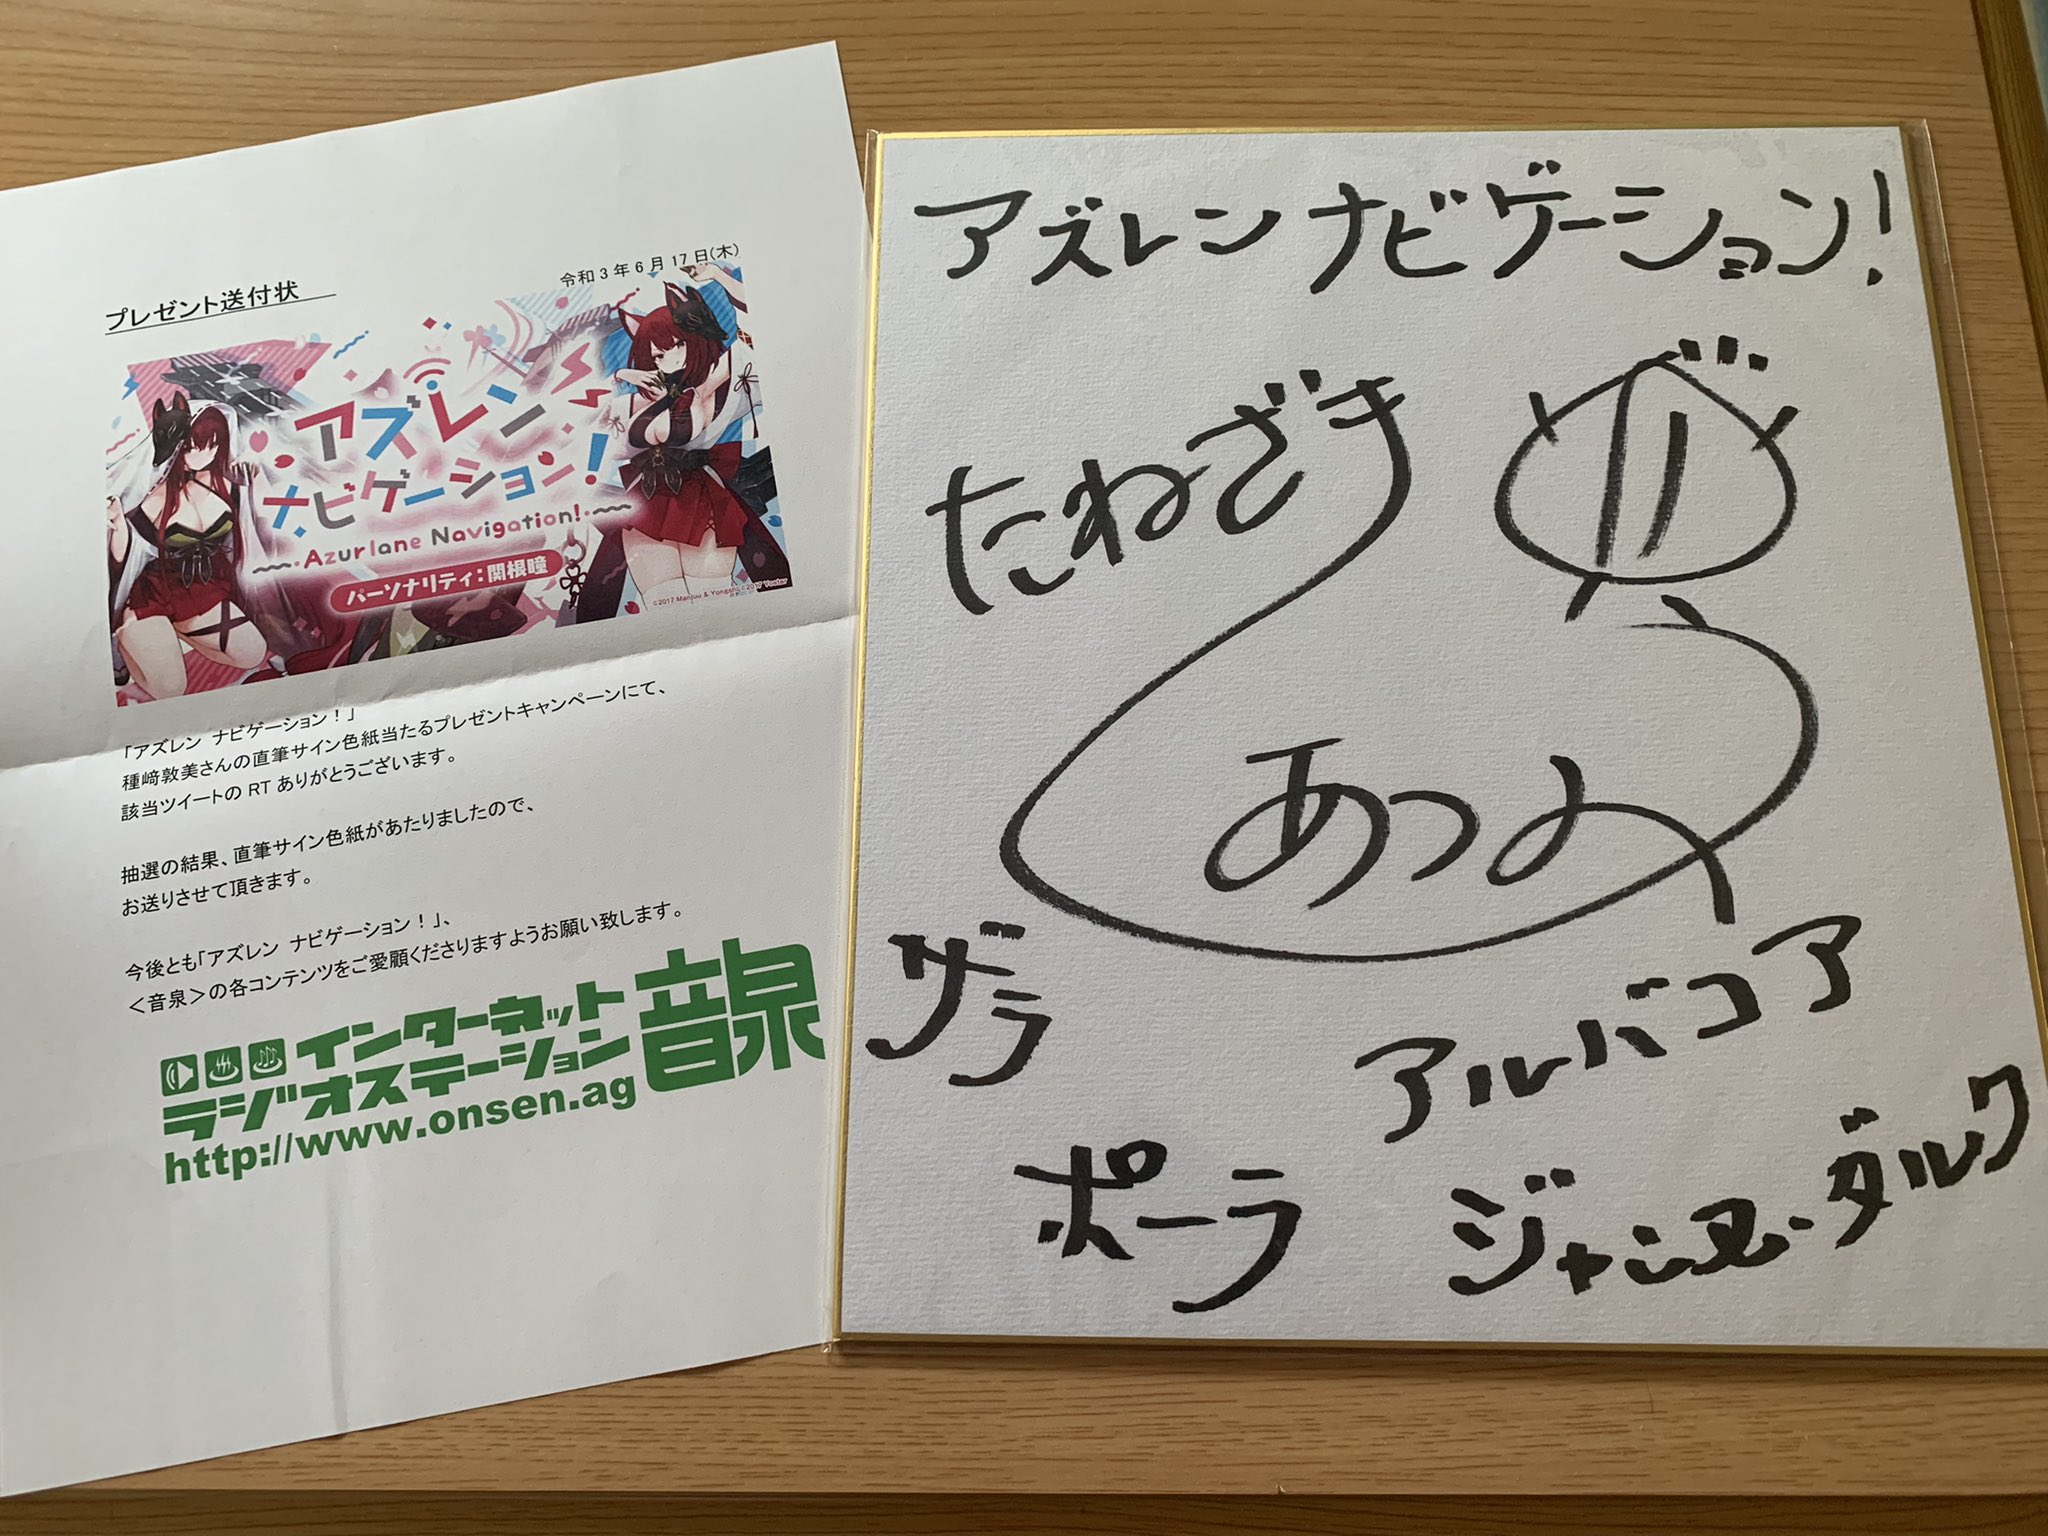 令和3年6月17日(木)
プレゼント送付状
アズレン
ナビゲーション!
Azurlane Navigation!
パーソナリティ:関根瞳
©2017 Manjuu & Yongshi ©2017 Yostar
「アズレン ナビゲーション!」
種﨑敦美さんの直筆サイン色紙当たるプレゼントキャンペーンにて、
該当ツイートの RT ありがとうございます。
抽選の結果、直筆サイン色紙があたりましたので、
お送りさせて頂きます。
今後とも「アズレン ナビゲーション!」、
<音泉>の各コンテンツをご愛顧くださりますようお願い致します。
インターネット
ラジオステーション
音泉
http://www.onsen.ag
アズレン ナビゲーション!
たねざき
あつみ
ザラ
アルバコア
ポーラ
ジャンヌ・ダルク